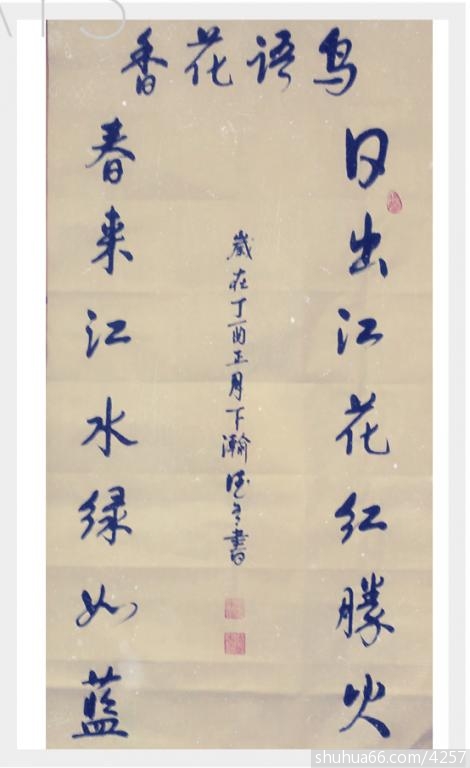 鸟语花香
日出江花红勝火
春来江水绿如藍
歲在丁酉正月下瀚
書
shuhua66.com/4257